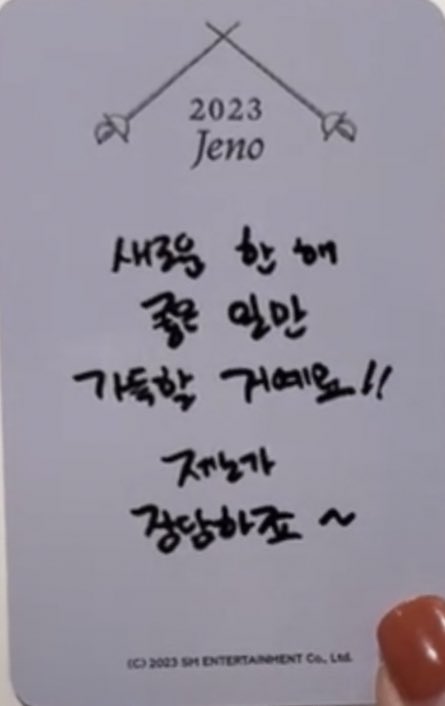 2023
Jeno
새로운 한 해
좋은 일만
가득할 거예요!!
제노가
장담하죠 ~
(C) 2023 SM ENTERTAINMENT Co., Ltd.